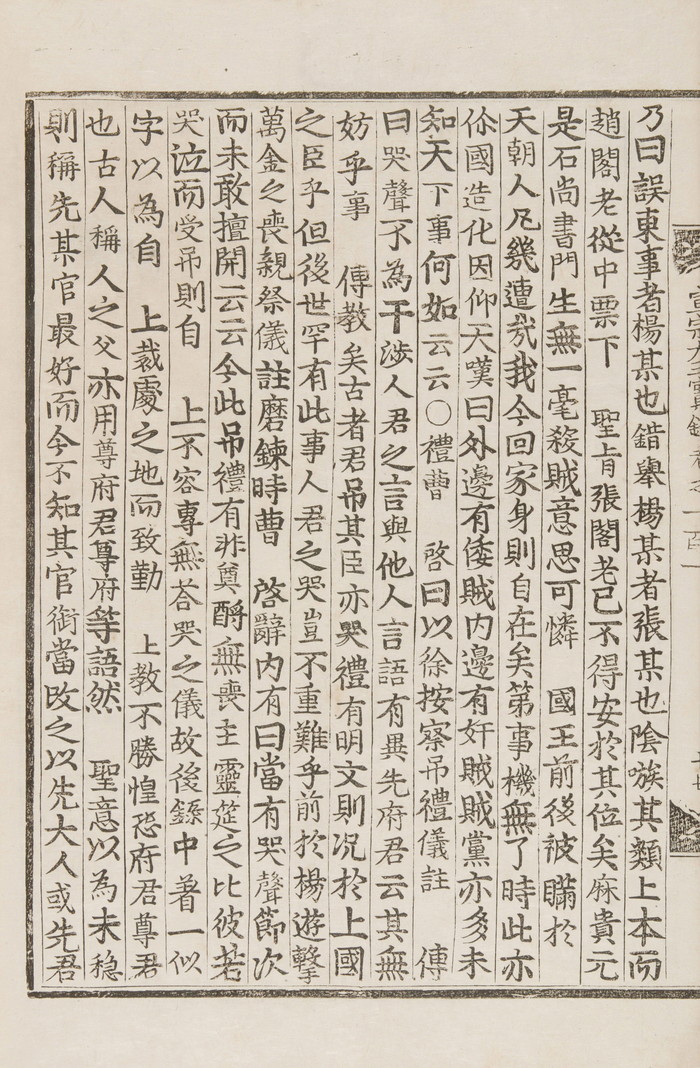 乃曰誤東事者楊某也錯擧楊某者張某也陰嗾其類上本而
趙閣老從中票下 聖旨張閣老已不得安於其位矣麻貴元
是石尙書門生無一毫殺賊意思可憐 國王前後被瞞於
天朝人凡幾遭哉我今回家身則自在矣第事機無了時此亦
你國造化因仰天嘆曰外邊有倭賊內邊有奸賊賊黨亦多未
知天下事何如云云○禮曹 啓曰以徐按察吊禮儀註 傳
曰哭聲不爲干涉人君之言與他人言語有異先府君云其無
妨乎事 傳敎矣古者君吊其臣亦哭禮有明文則況於上國
之臣乎但後世罕有此事人君之哭豈不重難乎前於楊遊擊
萬金之喪親祭儀註磨鍊時曹 啓辭內有曰當有哭聲節次
而未敢擅開云云今此吊禮有非奠酹無喪主靈筵之比彼若
哭泣而受吊則自 上不容專無荅哭之儀故後錄中着一似
字以為自 上裁處之地而致勤 上教不勝惶恐府君尊君
也古人稱人之父亦用尊府君尊府等語然 聖意以為未穩
則稱先某官最好而今不知其官銜當改之以先大人或先君